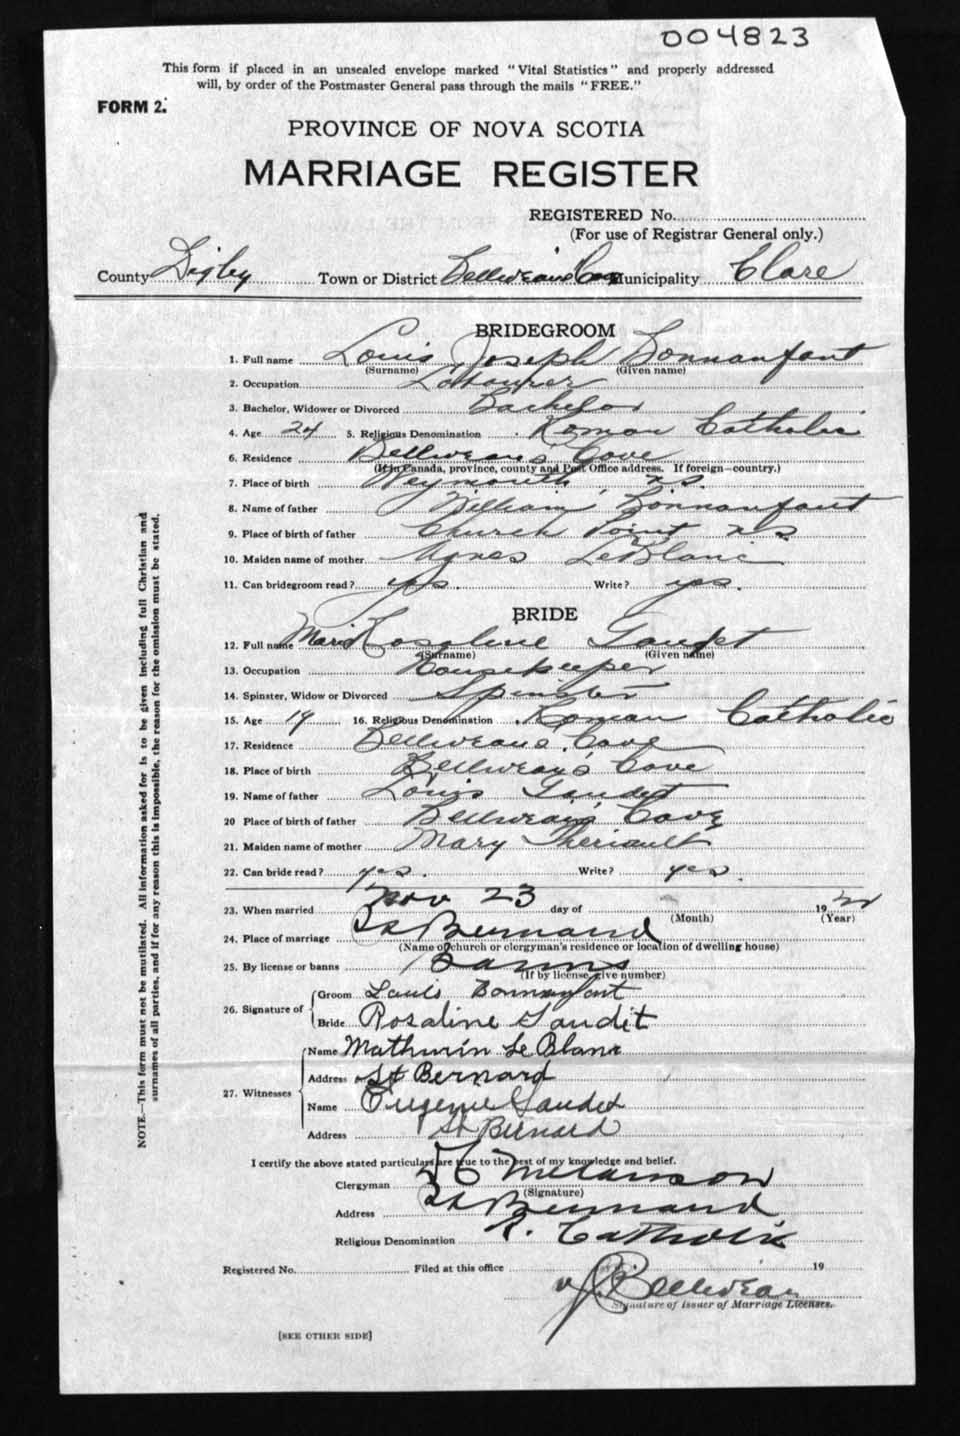 004823
This form if placed in an unsealed envelope marked "Vital Statistics" and properly addressed
will, by order of the Postmaster General pass through the mails "FREE."
FORM 2.
PROVINCE OF NOVA SCOTIA
MARRIAGE REGISTER
REGISTERED No.
(For use of Registrar General only.)
County Digby Town or District Belliveaus Cove Municipality Clare
BRIDEGROOM
1. Full name Louis Joseph Bonnanfant
(Surname) (Given name)
2. Occupation Labourer
3. Bachelor, Widower or Divorced Bachelor
4. Age 24 5. Religious Denomination Roman Catholic
6. Residence Belliveaus Cove
(If in Canada, province, county and Post Office address. If foreign—country.)
7. Place of birth Weymouth, N.S.
8. Name of father William Bonnanfant
9. Place of birth of father Church Point N.S.
10. Maiden name of mother Agnes LeBlanc
11. Can bridegroom read? yes. Write? yes.
BRIDE
12. Full name Marie Rosaline Gaudet
(Surname) (Given name)
13. Occupation Housekeeper
14. Spinster, Widow or Divorced Spinster
15. Age 19 16. Religious Denomination Roman Catholic
17. Residence Belliveaus Cove
18. Place of birth Belliveau's Cove
19. Name of father Louis Gaudet
20 Place of birth of father Belliveau's Cove
21. Maiden name of mother Mary Theriault
22. Can bride read? yes. Write? yes.
23. When married Nov 23 day of 19
(Month) (Year)
24. Place of marriage St Bernard
(Name of church or clergyman's residence or location of dwelling house)
25. By license or banns Banns
(If by license, give number)
26. Signature of Groom Louis Bonnanfant
Bride Rosaline Gaudet
27. Witnesses Name Mathurin Le Blanc
Address St Bernard
Name Eugenie Gaudet
Address St Bernard
I certify the above stated particulars are true to the best of my knowledge and belief.
Clergyman Melanson
(Signature)
Address St Bernard
Religious Denomination R. Catholic
Registered No. Filed at this office 19
Belliveau
Signature of issuer of Marriage Licenses.
[SEE OTHER SIDE]
NOTE.—This form must not be mutilated. All information asked for is to be given including full Christian and
surnames of all parties, and if for any reason this is impossible, the reason for the omission must be stated.